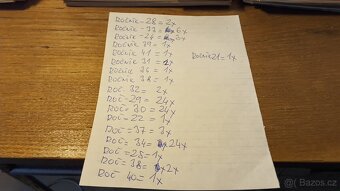 ROČNÍK - 28 = 2x
ROČNÍK - 33 = 6x
ROČNÍK - 24 = 3x
ROČNÍK 39 = 1x
ROČNÍK 41 = 1x
ROČNÍK 31 = 2x
ROČNÍK 26 = 1x
ROČNÍK 38 = 1x
ROČ = 32 = 2x
ROČ = 29 = 24x
ROČ = 30 = 24x
ROČ = 22 = 1x
ROČ = 37 = 3x
ROČ = 34 = 24x
ROČ = 25 = 1x
ROČ = 36 = 2x
ROČ 40 = 1x
ROČNÍK 21 = 1x
Bazos.cz